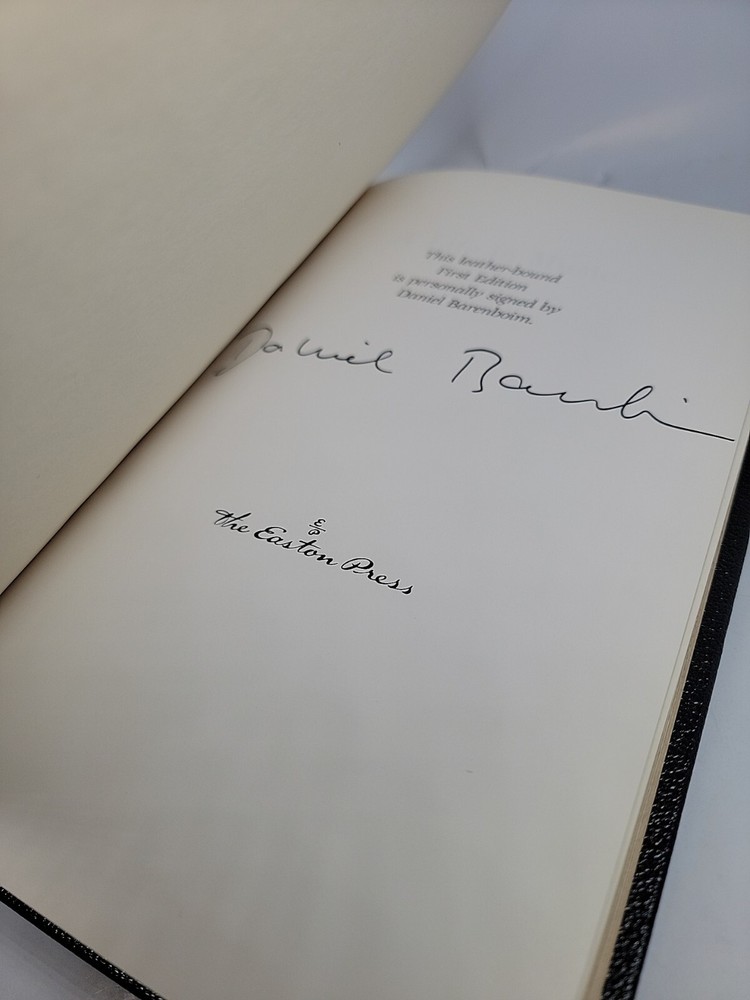 This leather-bound
First Edition
is personally signed by
Daniel Barenboim.
Daniel Barenboim
E/P
the Easton Press